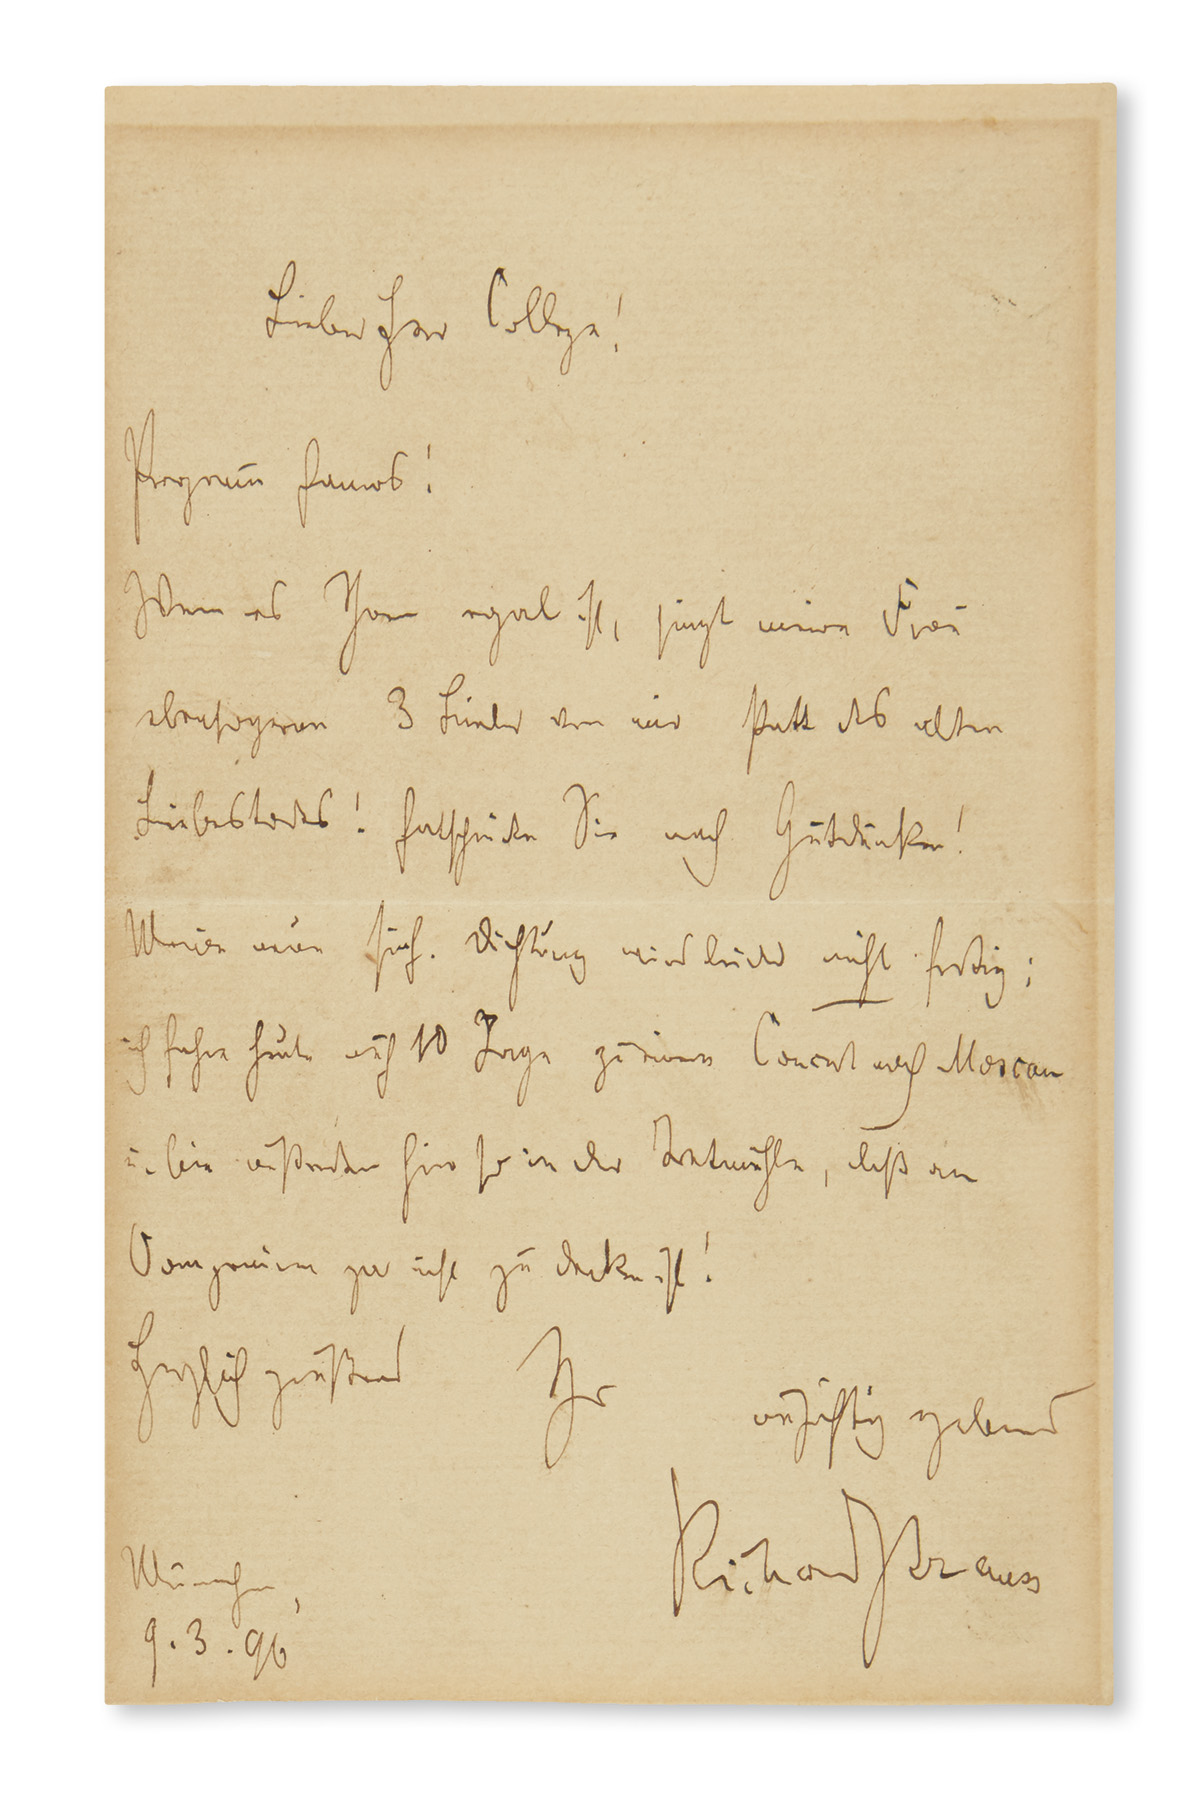 Lieber Herr College!
Program famos!
Wenn es Ihnen egal ist, singt meine Frau
ebensogern 3 Lieder von mir statt des alten
Liebestodes! Entscheiden Sie nach Gutdünken!
Meine neue sinf. Dichtung wird leider nicht fertig;
ich fahre heute auf 10 Tage zu einem Concert nach Moscau
u. bin außerdem hier so in der Tretmühle, daß an
Componieren gar nicht zu denken ist!
Herzlich grüßend Ihr
aufrichtig ergebener
Richard Strauss
München,
9.3.96